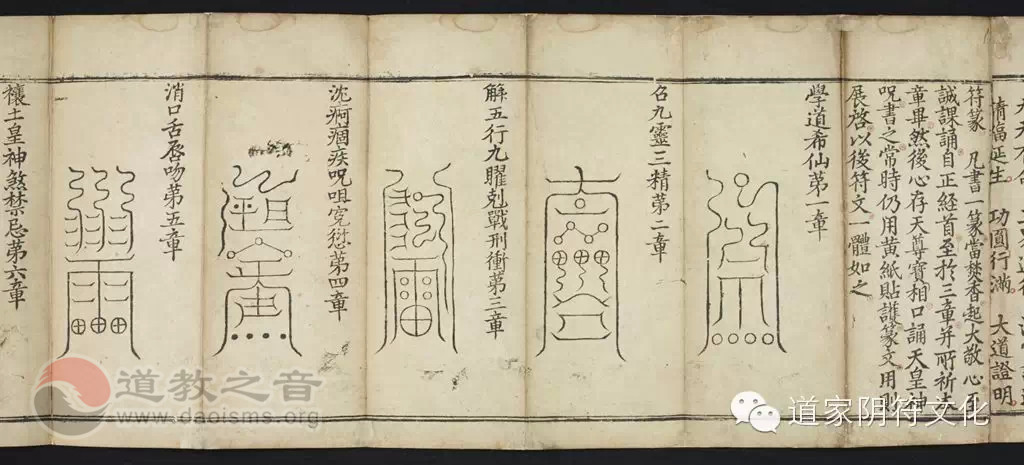 福延生 功圓行滿 大道證明
符篆 凡書一篆當焚香起大敬心至
誠課誦自正経首至於三章并所祈之
章畢然後心存天尊寳相口誦天皇神
呪書之常時仍用黄紙貼護篆文用則
展啓以後符文一體如之
學道希仙第一章
召九靈三精第二章
解五行九曜剋戰刑衝第三章
沈痾痼疾呪咀寃愆第四章
消口舌唇吻第五章
禳土皇神煞禁忌第六章
道教之音
www.daoisms.org
道家阴符文化